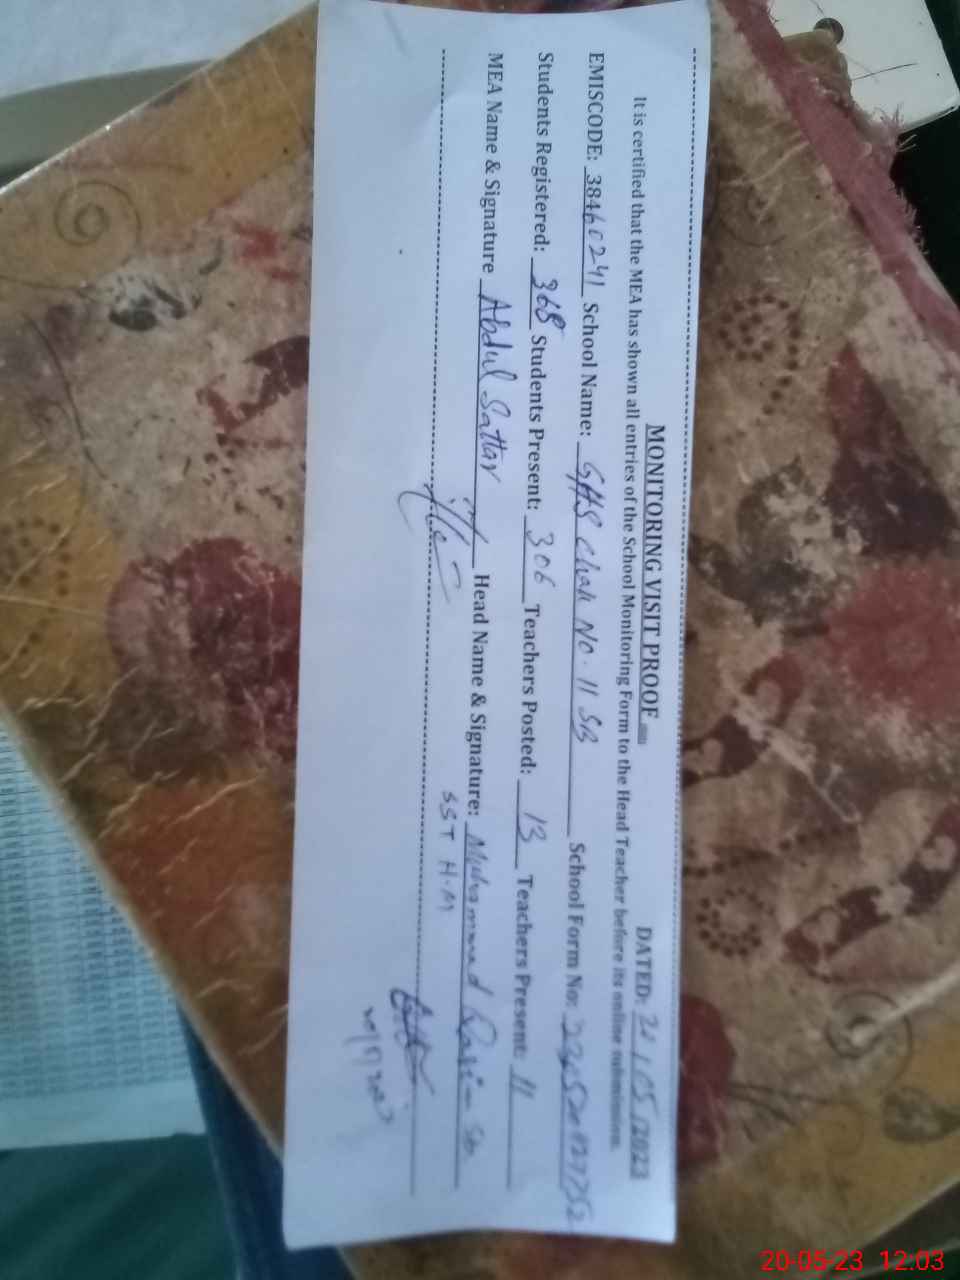 MONITORING VISIT PROOF
DATED: 20/05/2023
It is certified that the MEA has shown all entries of the School Monitoring Form to the Head Teacher before its online submission.
EMISCODE: 38460241 School Name: GHS Chak No. 11 SB School Form No:
Students Registered: 368 Students Present: 306 Teachers Posted: 13 Teachers Present: 11
MEA Name & Signature Abdul Sattar Head Name & Signature: Muhammad
SST H.M
20-05-23 12.03